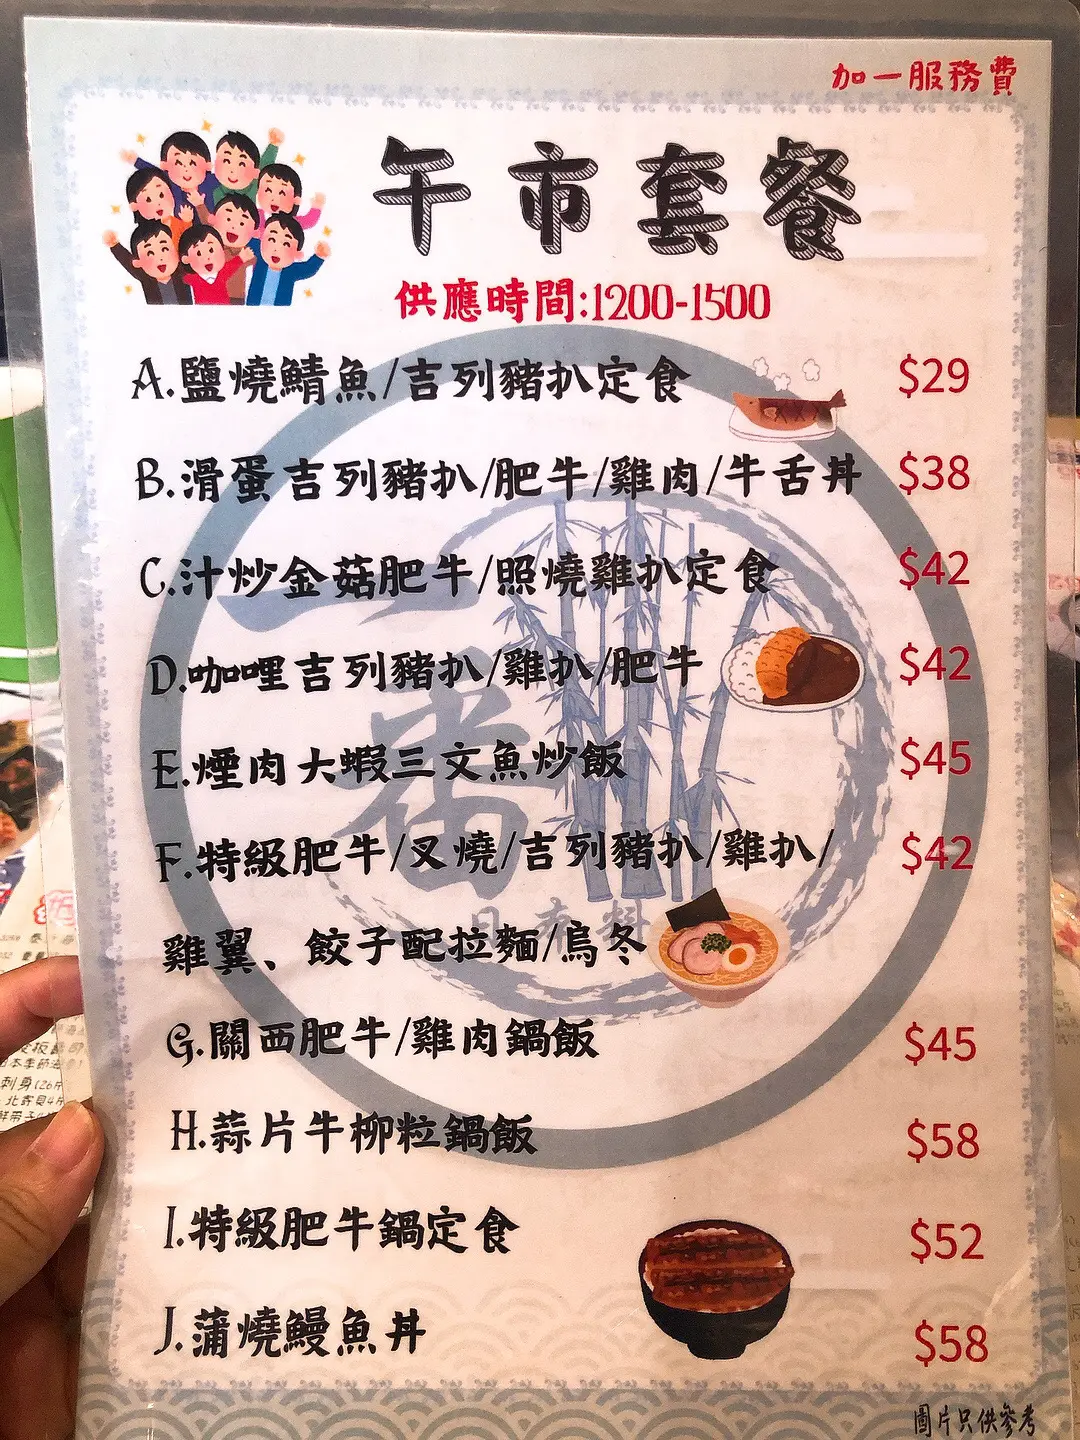 加一服務費
午市套餐
供應時間:1200-1500
A.鹽燒鯖魚/吉列豬扒定食 $29
B.滑蛋吉列豬扒/肥牛/雞肉/牛舌丼 $38
C.汁炒金菇肥牛/照燒雞扒定食 $42
D.咖哩吉列豬扒/雞扒/肥牛 $42
E.煙肉大蝦三文魚炒飯 $45
F.特級肥牛/叉燒/吉列豬扒/雞扒/ $42
雞翼、餃子配拉麵/烏冬
G.關西肥牛/雞肉鍋飯 $45
H.蒜片牛柳粒鍋飯 $58
I.特級肥牛鍋定食 $52
J.蒲燒鰻魚丼 $58
圖片只供參考
一番
日本料